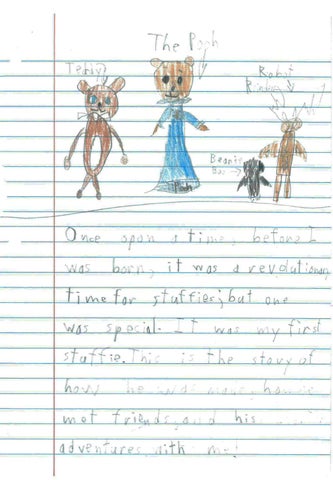 The Pooh
Teddy
Robot
Beanie
Once upon a time, before I
was born, it was a revolutionary
time for stuffies; but one
was special. It was my first
stuffie. This is the story of
how he was made, how he
met friends, and his
adventures with me!